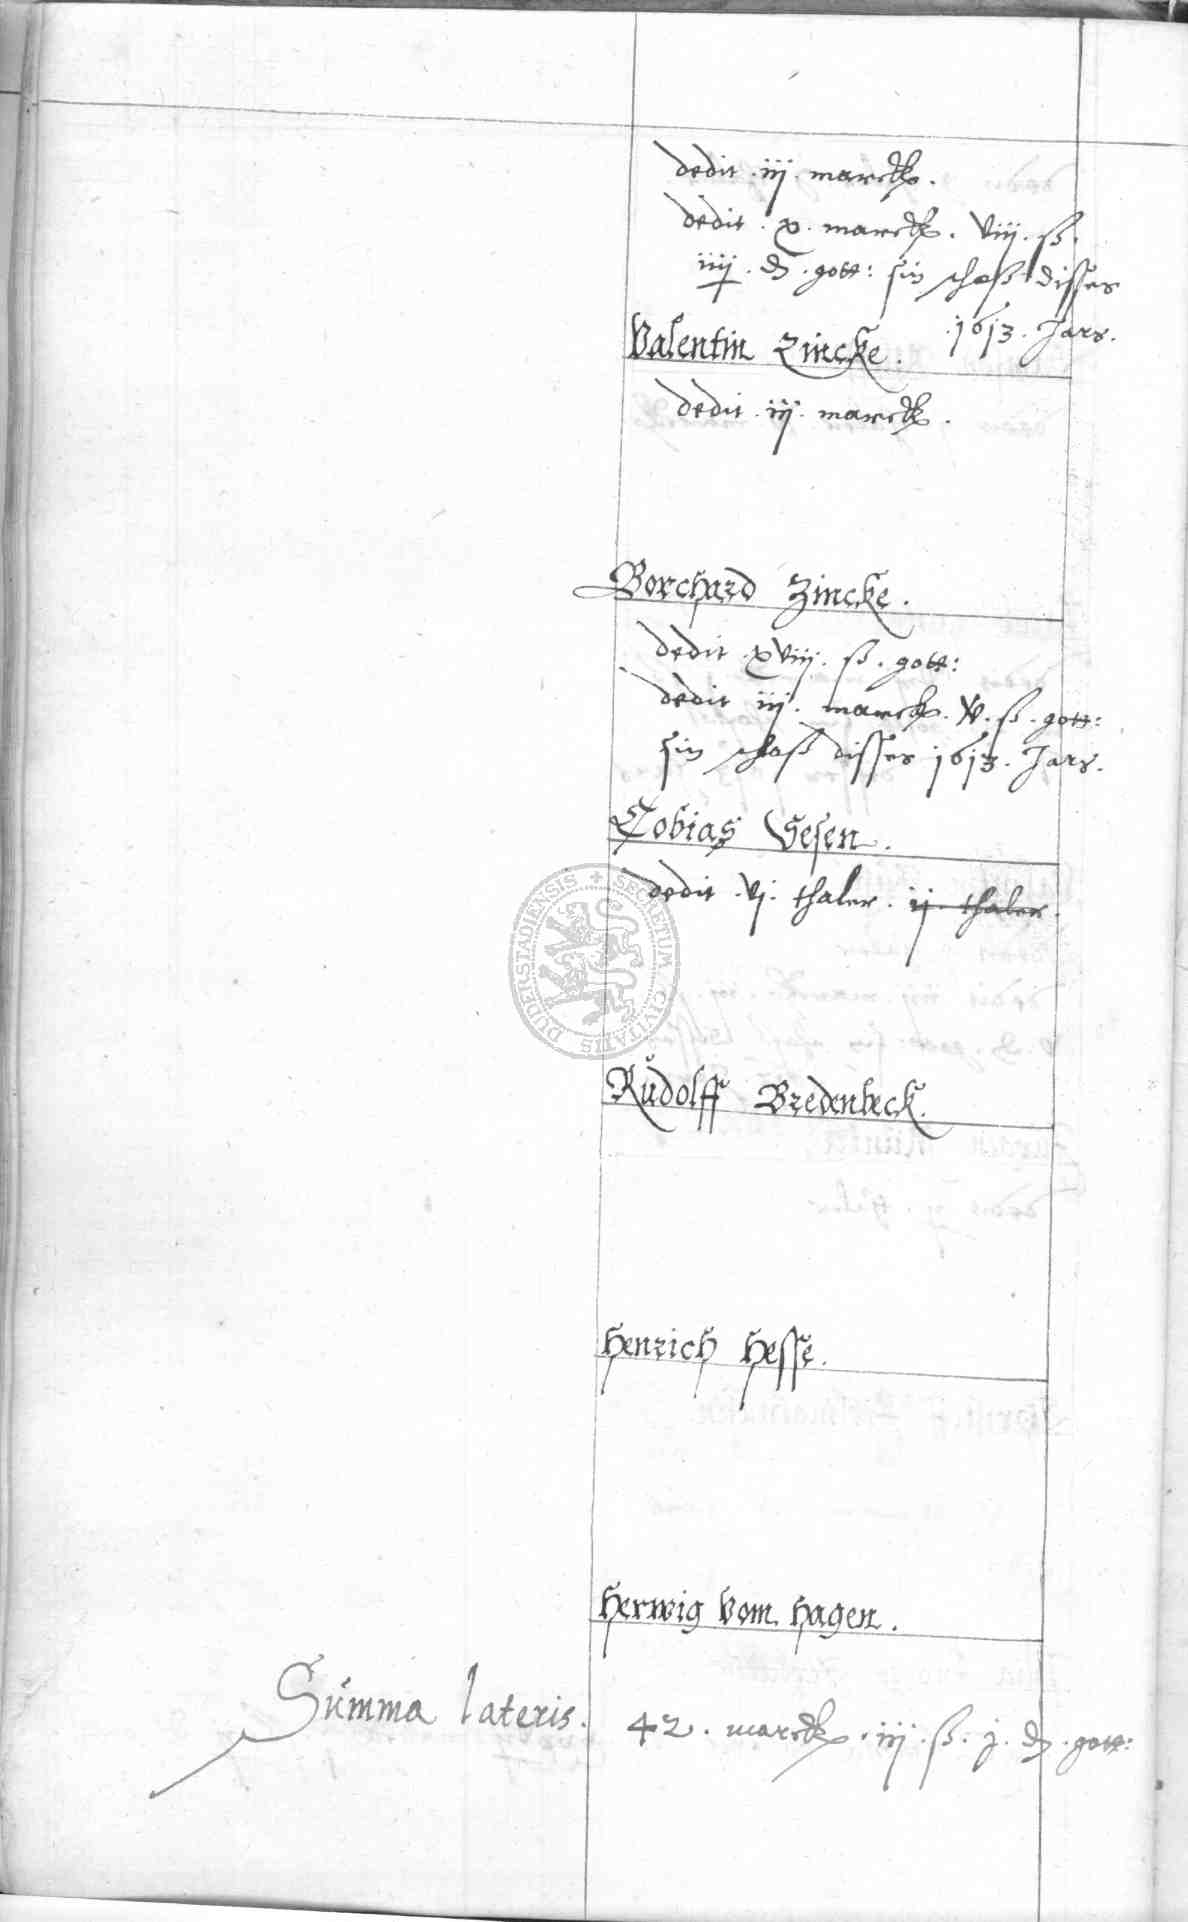 dedit . iij . marck .
dedit . x . marck . viij . ß .
iiij . ₰ . gott: sin schoß disses
. 1613 . Jars .
Valentin Zincke .
dedit . iij . marck .
Borchard Zincke .
dedit . xviij . ß . gott:
dedit iij . marck . v . ß . gott:
sin schoß disses 1613 . Jars .
Tobias Gesen .
dedit . vj . thaler . ij . thaler .
Rudolff Bredenbeck .
Henrich Hesse .
Herwig vom Hagen .
Summa lateris . 42 . marck . iij . ß . j . ₰ . gott:
DUDERSTADIENSIS + SECRETUM CIVITATIS